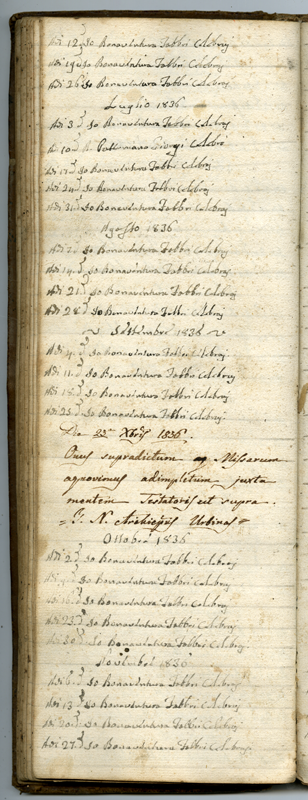 Adì 12 d.o Io Bonaventura Fabbri Celebraj
Adì 19 d.o Io Bonaventura Fabbri Celebraj
Adì 26 d.o Io Bonaventura Fabbri Celebraj
Luglio 1836
Adì 3 d.o Io Bonaventura Fabbri Celebraj
Adì 10 d.o Giorgi Celebrò
Adì 17 d.o Io Bonaventura Fabbri Celebraj
Adì 24 d.o Io Bonaventura Fabbri Celebraj
Adì 31 d.o Io Bonaventura Fabbri Celebraj
Agosto 1836
Adì 7 d.o Io Bonaventura Fabbri Celebraj
Adì 14 d.o Io Bonaventura Fabbri Celebraj
Adì 21 d.o Io Bonaventura Fabbri Celebraj
Adì 28 d.o Io Bonaventura Fabbri Celebraj
~ Settembre 1836 ~
Adì 4 d.o Io Bonaventura Fabbri Celebraj
Adì 11 d.o Io Bonaventura Fabbri Celebraj
Adì 18 d.o Io Bonaventura Fabbri Celebraj
Adì 25 d.o Io Bonaventura Fabbri Celebraj
Die 22 Xbris 1836.
Onus supradictum Missarum
agnovimus adimpletum juxta
mentem Testatoris ut supra.
= N. Archiepus Urbinas =
Ottobre 1836
Adì 2 d.o Io Bonaventura Fabbri Celebraj
Adì 9 d.o Io Bonaventura Fabbri Celebraj
Adì 16 d.o Io Bonaventura Fabbri Celebraj
Adì 23 d.o Io Bonaventura Fabbri Celebraj
Adì 30 d.o Io Bonaventura Fabbri Celebraj
Novembre 1836
Adì 6 d.o Io Bonaventura Fabbri Celebraj
Adì 13 d.o Io Bonaventura Fabbri Celebraj
Adì 20 d.o Io Bonaventura Fabbri Celebraj
Adì 27 d.o Io Bonaventura Fabbri Celebraj